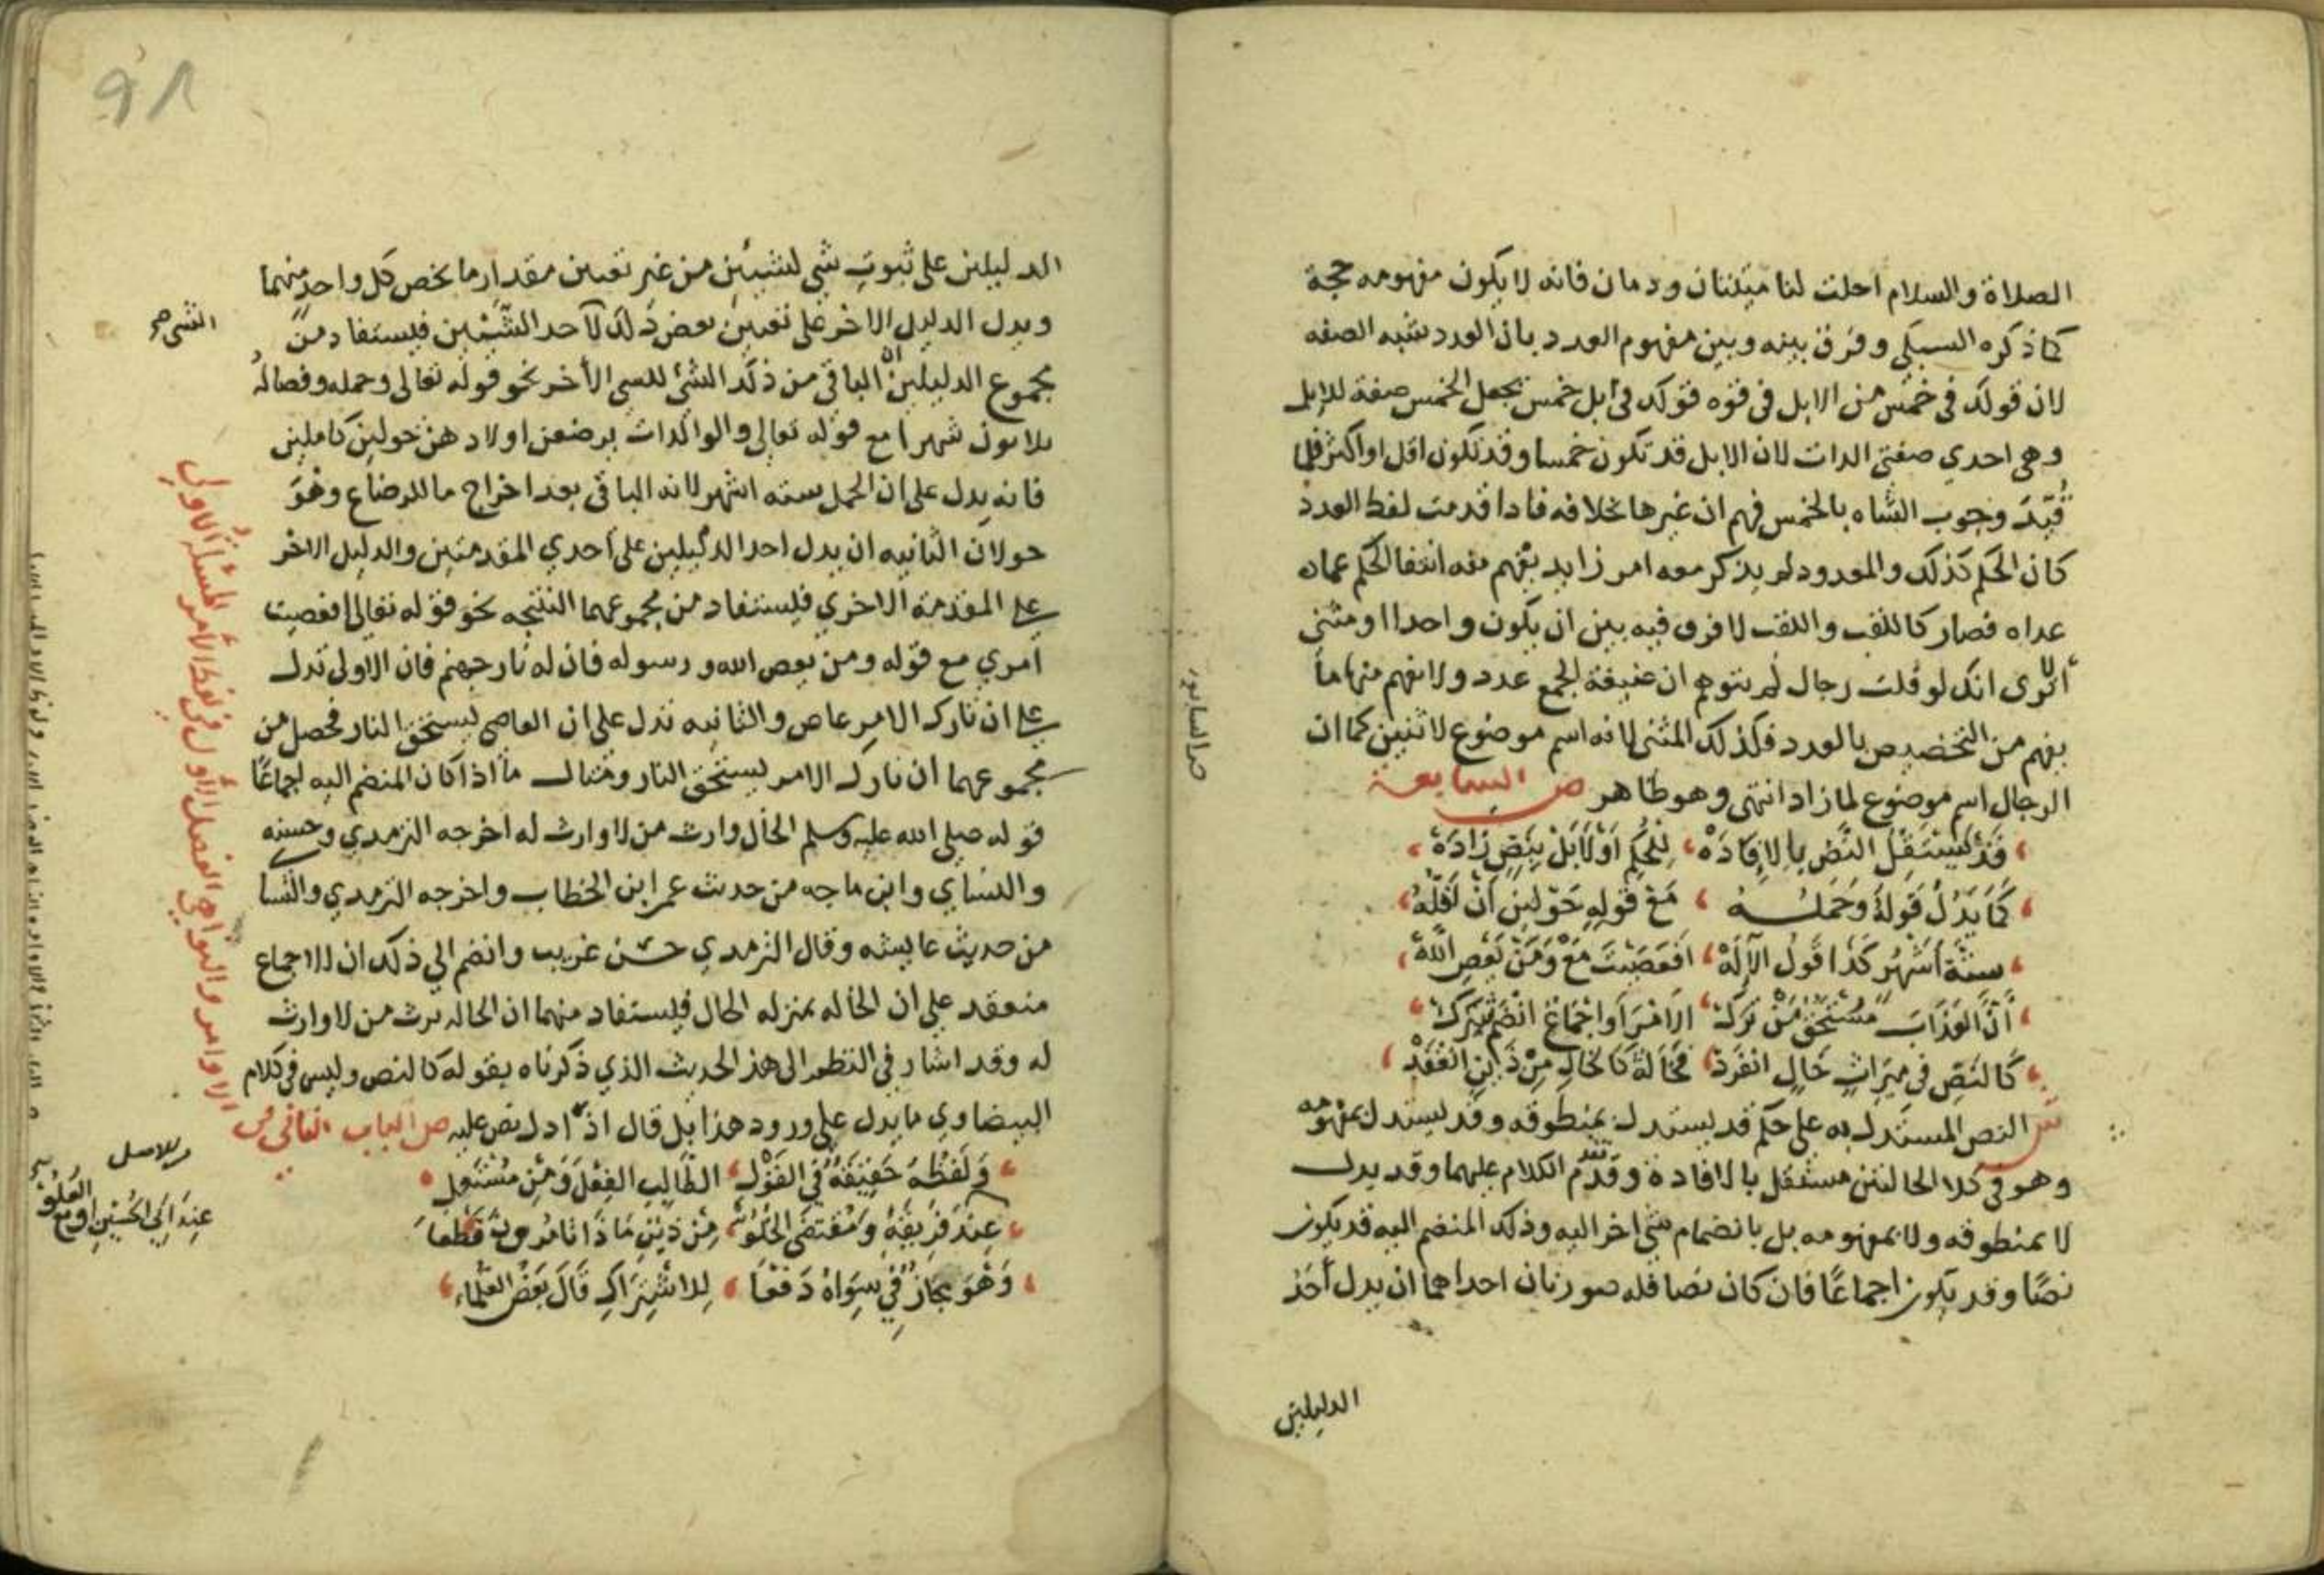 الصلاة والسلام احلت لنا ميتتان ودمان فانه لا يكون مفهومه حجة
كما ذكره السبكي وفرق بينه وبين مفهوم العدد بان العدد شبه الصفه
لان قولك في خمس من الابل في قوه قولك في ابل خمس بجعل الخمس صفة للابل
وهي احدي صفتي الذات لان الابل قد تكون خمسا وقد تكون اقل او اكثر فلما
قيدت وجوب الشاه بالخمس فهم ان غيرها بخلافه فاذا قدمت لفظ العدد
كان الحكم كذلك والمعدود لم يذكر معه امر زايد يفهم منه انتفا الحكم عماه
عداه فصار كاللقب واللقب لا فرق فيه بين ان يكون واحدا او مثني
الا تري انك لو قلت رجال لم يتوهم ان صيغة الجمع عدد ولا يفهم منها ما
يفهم من التخصيص بالعدد فكذلك المثني لانه اسم موضوع لاثنين كما ان
الرجال اسم موضوع لما زاد انتهي وهو ظاهر ص السابعة
قَدْ يَستَقِلّ النَّصّ بِالاِفَادَهْ لِلحُكمِ اَوْ لَا بَلْ بِنَصٍّ زَادَهْ
كَمَا يَدُلّ قَولهُ وَحَملُــــهُ مَعْ قَولِهِ حَوْلَينِ اَنَّ اَقَلَّهُ
سِتَّة اَشْهُر كَذَا قَولُ الاِلَهْ اَفَعَصَيْتَ مَعْ وَمَنْ يَعْصِ اللَّهْ
اَنَّ العَذَابَ مُسْتَحِقّ مَنْ تَرَكْ الاَمْرَ اَو اِجْمَاعٌ انْضَمّ يَشْتَرِكْ
كَالنَّصّ فِي مِيرَاثِ خَالٍ انْفَرَدْ فَخَالَةٌ كَالخَالِ مِنْ ذَينِ انعَقَدْ
ش النص المستدل به علي حكم قد يستدل بمنطوقه وقد يستدل بمفهومه
وهو في كلا الحالتين مستقل بالافادة وقد تقدم الكلام عليهما وقد يدل
لا بمنطوقه ولا بمفهومه بل بانضمام شي اخر اليه وذلك المنضم اليه قد يكون
نصًا وقد يكون اجماعًا فان كان نصا فله صورتان احداهما ان يدل احد
الدليلين
الدليلين علي ثبوت شي لشيئين من غير تعيين مقدار ما يخص كل واحد منهما
ويدل الدليل الاخر علي تعيين بعض ذلك لاحد الشيئين فيستفاد من
مجموع الدليلين ان الباقي من ذلك الشئ للشي الأخر نحو قوله تعالي وحمله وفصاله
ثلاثون شهرا مع قوله تعالي والوالدات يرضعن اولادهن حولين كاملين
فانه يدل علي ان الحمل سته اشهر لانه الباقي بعد اخراج ما للرضاع وهو
حولان الثانيه ان يدل احد الدليلين علي احدي المقدمتين والدليل الاخر
علي المقدمة الاخري فيستفاد من مجموعهما النتيجه نحو قوله تعالي افعصيت
امري مع قوله ومن يعص الله ورسوله فان له نار جهنم فان الاولي تدل
علي ان تارك الامر عاص والثانيه تدل علي ان العاصي يستحق النار فحصل من
مجموعهما ان تارك الامر يستحق النار ومثال ما اذا كان المنضم اليه اجماعًا
قوله صلي الله عليه وسلم الخال وارث من لا وارث له اخرجه الترمدي وحسنه
والنساي وابن ماجه من حديث عمر ابن الخطاب واخرجه الترمدي والنسا
من حديث عايشه وقال الترمدي حسن غريب وانضم الي ذلك ان الاجماع
منعقد علي ان الخاله بمنزله الخال فيستفاد منهما ان الخاله ترث من لا وارث
له وقد اشار في النظم الي هذا الحديث الذي ذكرناه بقوله كالنص وليس في كلام
البيضاوي ما يدل علي ورود هذا بل قال اذا دل نص عليه ص الباب الثاني في
الاوامر والنواهي الفصل الأول في لفظ الأمر المسئلة الاولي
وَلَفْظُهُ حَقِيقَةٌ فِي القَوْلِ الطَّالِبِ الفِعْلَ وَمِنْ مُسْتَعْلِ
عِنْدَ فَرِيقِهِ وَمُقْتَضَي الخُلُوّ مِنْ ذَيْنِ مَاذَا تَامُرُونَ قَطْعَا
عِنْدَ اَبِي الحُسَيْنِ اَو مَعَ العُلُوّ
وَهْوَ مَجَازٌ فِي سِوَاهُ دَفْعَا لِلاشْتِرَاكِ قَالَ بَعْضُ العُلَمَاء